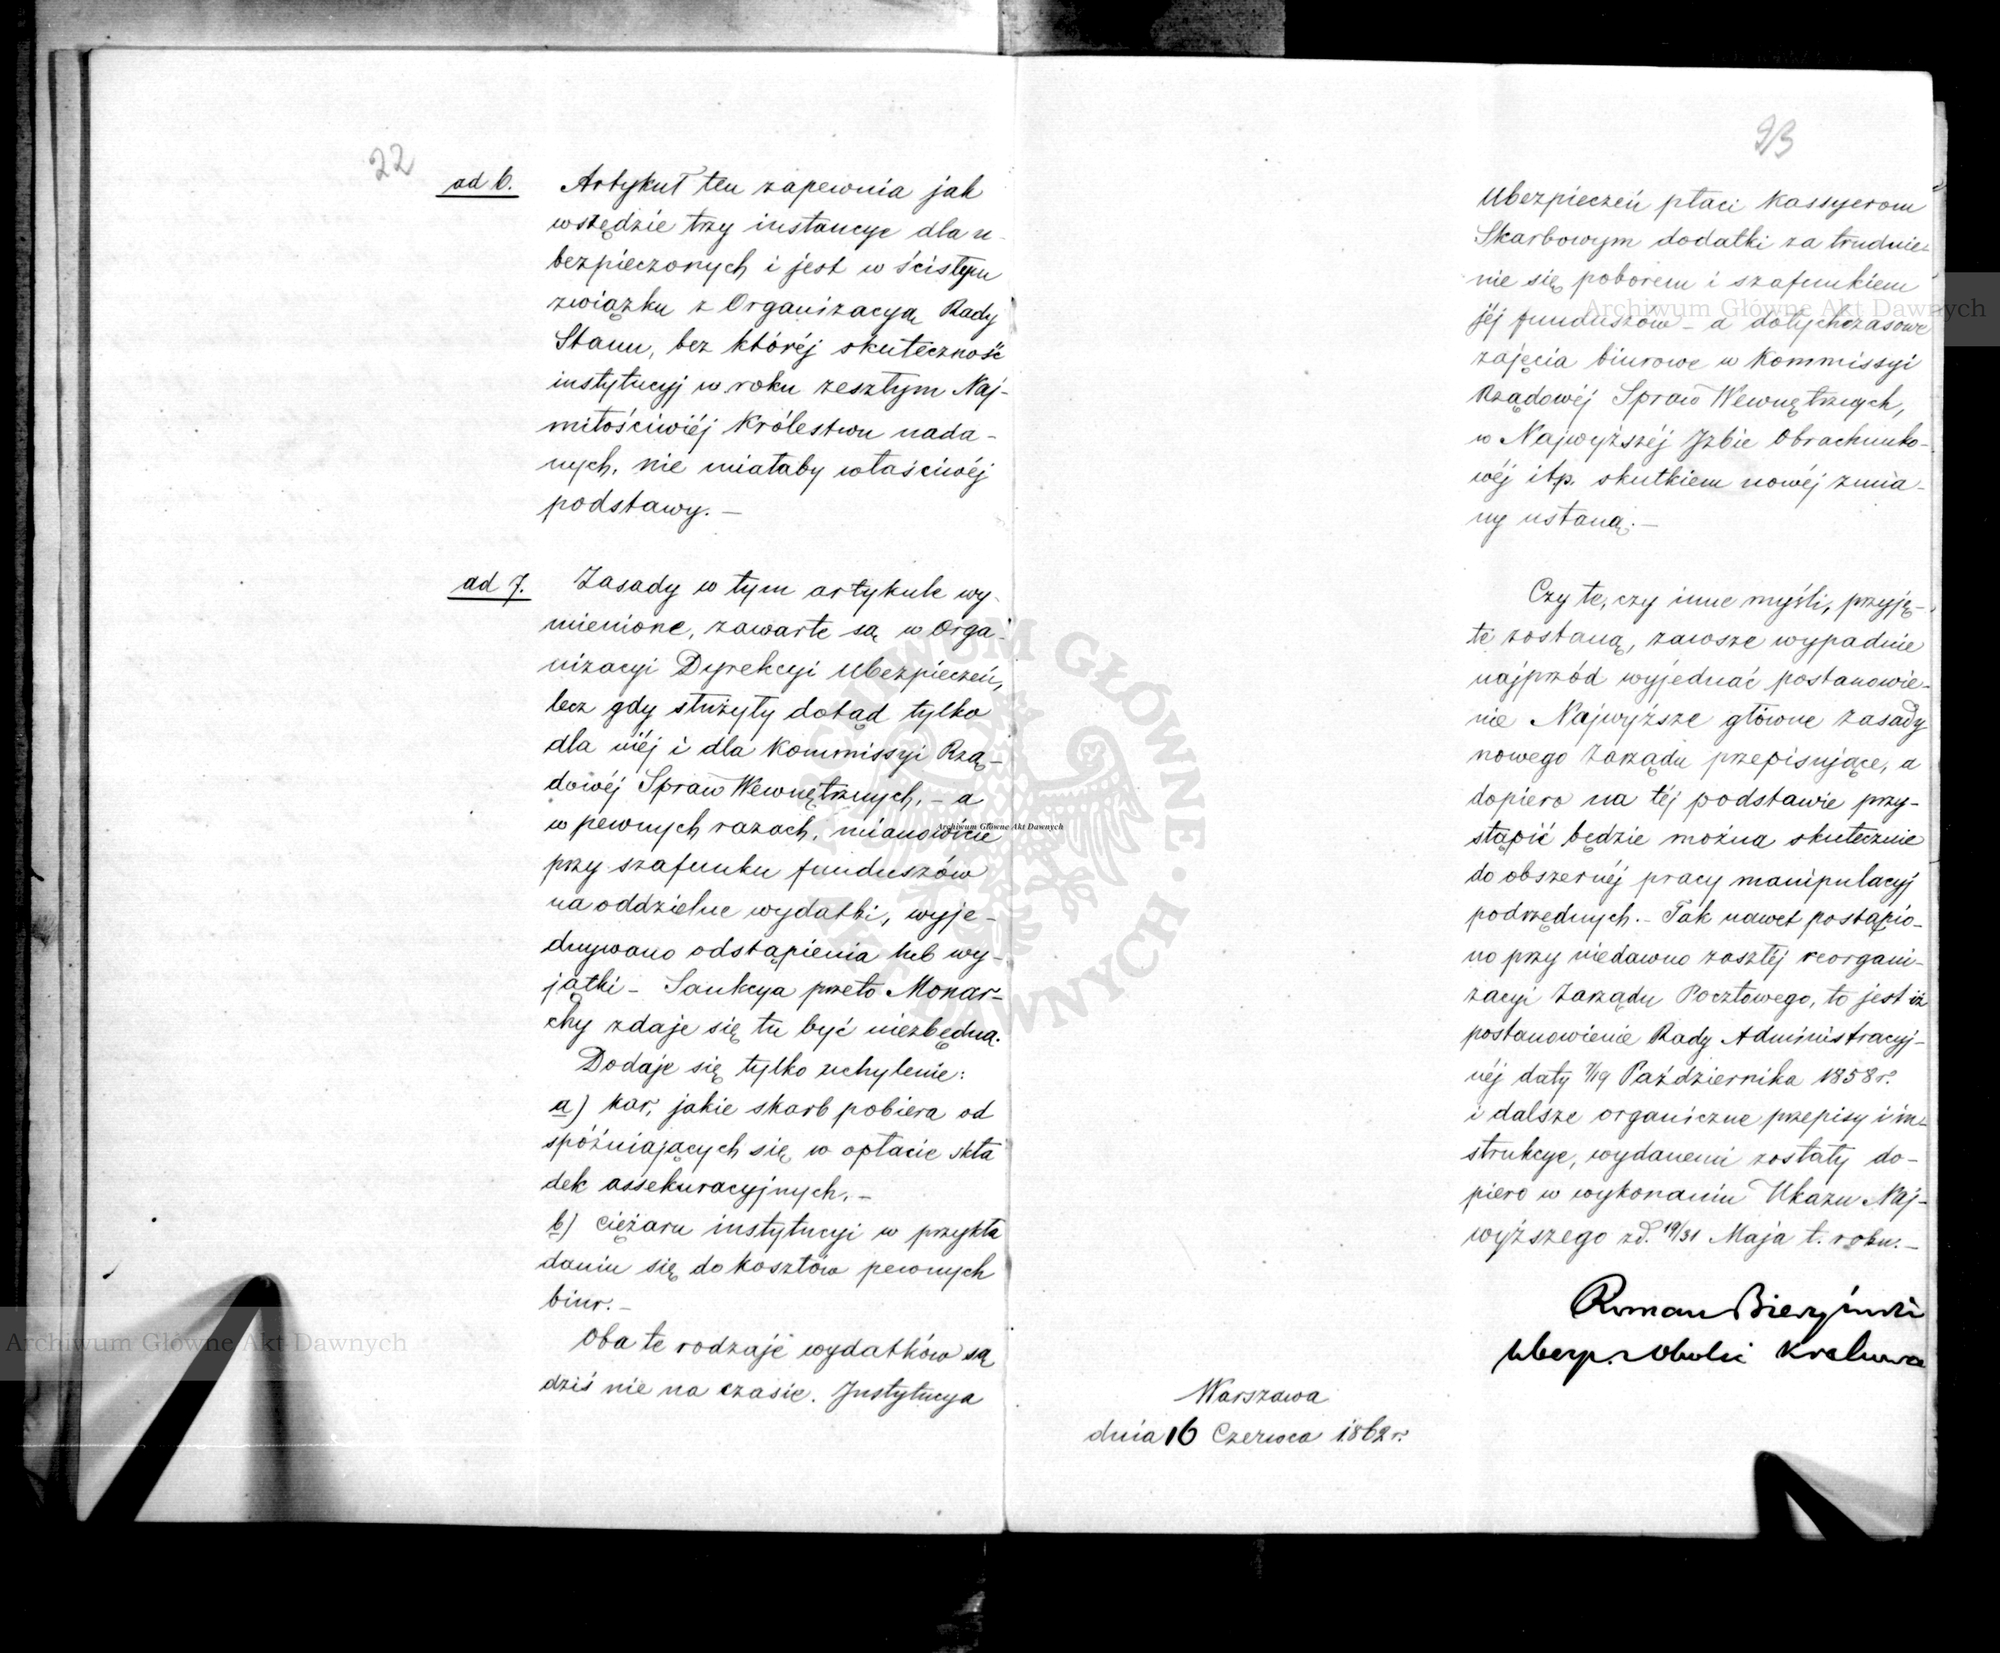 22
ad 6. Artykuł ten zapewnia jak
wszędzie trzy instancye dla u-
bezpieczonych i jest w ścisłym
związku z Organizacyą Rady
Stanu, bez któréj skuteczność
instytucyj w roku zeszłym Naj-
miłościwiéj Królestwu nada-
nych, nie miałaby właściwéj
podstawy. —
ad 7. Zasady w tym artykule wy-
mienione, zawarte są w Orga-
nizacyi Dyrekcyi Ubezpieczeń,
lecz gdy służyły dotąd tylko
dla niéj i dla Kommissyi Rzą-
dowéj Spraw Wewnętrznych, – a
w pewnych razach, mianowicie
przy szafunku funduszów
na oddzielne wydatki, wyje-
dnywano odstąpienia lub wy-
jątki – Sankcya przeto Monar-
chy zdaje się tu być niezbędną.
Dodaje się tylko uchylenie:
a) kar, jakie skarb pobiera od
spóźniających się w opłacie skła
dek assekuracyjnych. –
b) ciężaru instytucyi w przykła
daniu się do kosztów pewnych
biur. –
Oba te rodzaje wydatków są
dziś nie na czasie. Instytucya
23
Ubezpieczeń płaci Kassyerom
Skarbowym dodatki za trudnie-
nie się poborem i szafunkiem
jéj funduszów – a dotychczasowe
zajęcia biurowe w Kommissyi
Rządowéj Spraw Wewnętrznych,
w Najwyższéj Izbie Obrachunko-
wéj itp. skutkiem nowéj zmia-
ny ustaną. —
Czy te, czy inne myśli, przyję-
te zostaną, zawsze wypadnie
najprzód wyjednać postanowie-
nie Najwyższe główne zasady
nowego Zarządu przepisujące, a
dopiero na téj podstawie przy-
stąpić będzie można skutecznie
do obszernéj pracy manipulacyj
podrzędnych. – Tak nawet postąpio-
no przy niedawno zaszłéj reorgani-
zacyi Zarządu Pocztowego, to jest iż
postanowienie Rady Administracyj-
néj daty 7/19 Października 1858 r.
i dalsze organiczne przepisy i in-
strukcye, wydanemi zostały do-
piero w wykonaniu Ukazu Naj-
wyższego z d. 19/31 Maja t. roku. –
Roman
Warszawa
dnia 16 Czerwca 1862 r.
Archiwum Główne Akt Dawnych
Archiwum Główne Akt Dawnych
Archiwum Główne Akt Dawnych
Archiwum Główne Akt Dawnych
ARCHIWUM GŁÓWNE AKT DAWNYCH